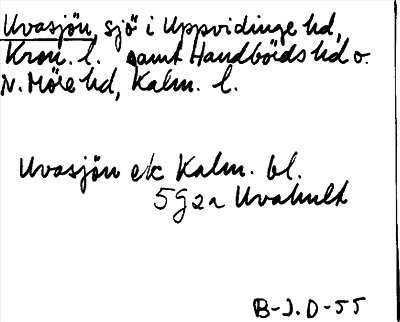 Uvasjön, sjö i Uppvidinge hd,
Kron. l. samt Handbörds hd o.
N. Möre hd, Kalm. l.
Uvasjön ek Kalm. bl.
5g2a Uvahult
B-J.O-55